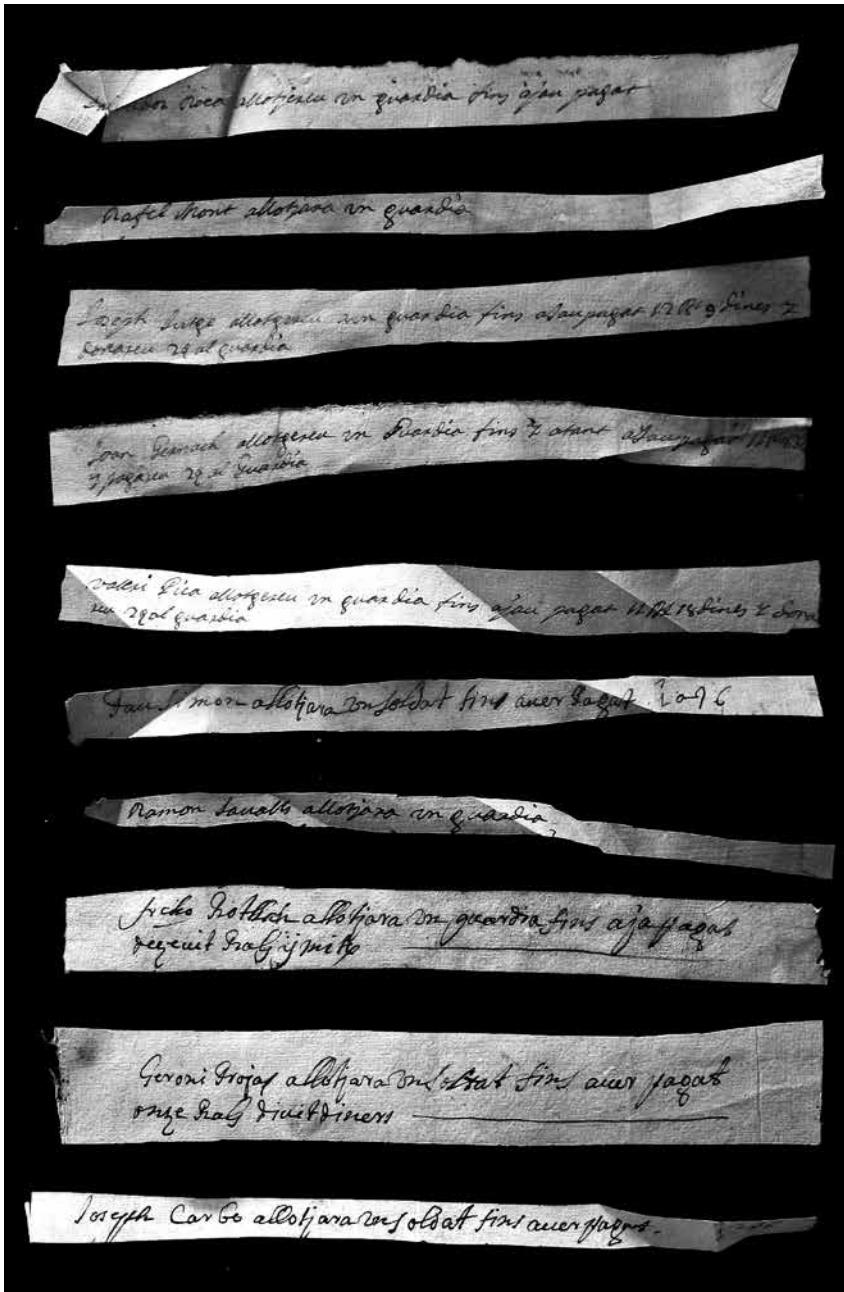 Roca allotjereu vn guardia fins ajau pagat
Rafel Mont allotjara vn guardia
Joseph Jutge allotgereu vn guardia fins aJau pagat 12 Rs 9 dines y
donareu 2 q al guardia
Joan allotgereu vn Guardia fins y atant aJau pagat
y pagareu 2 q al Guardia
Valeri Pica allotgereu vn guardia fins ajau pagat 11 Rs 18 dines y dona
reu 2 q al guardia
Pau Simon allotjara vn soldat fins auer pagat
Ramon Saualls allotjara vn guardia
allotjara vn guardia fins aja pagat
dezeuit Rals y mitg
Geroni Trojas allotjara vn soldat fins auer pagat
onze Rals divit diners
Joseph Carbo allotjara vn soldat fins auer pagat